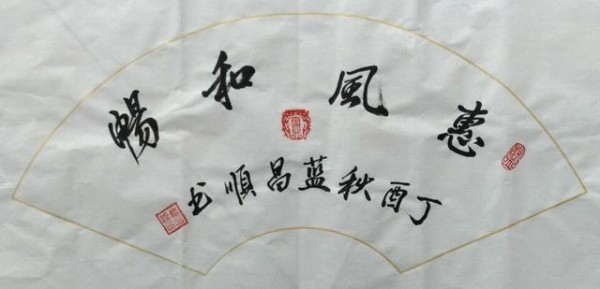 惠風和暢
丁酉秋蓝昌順书